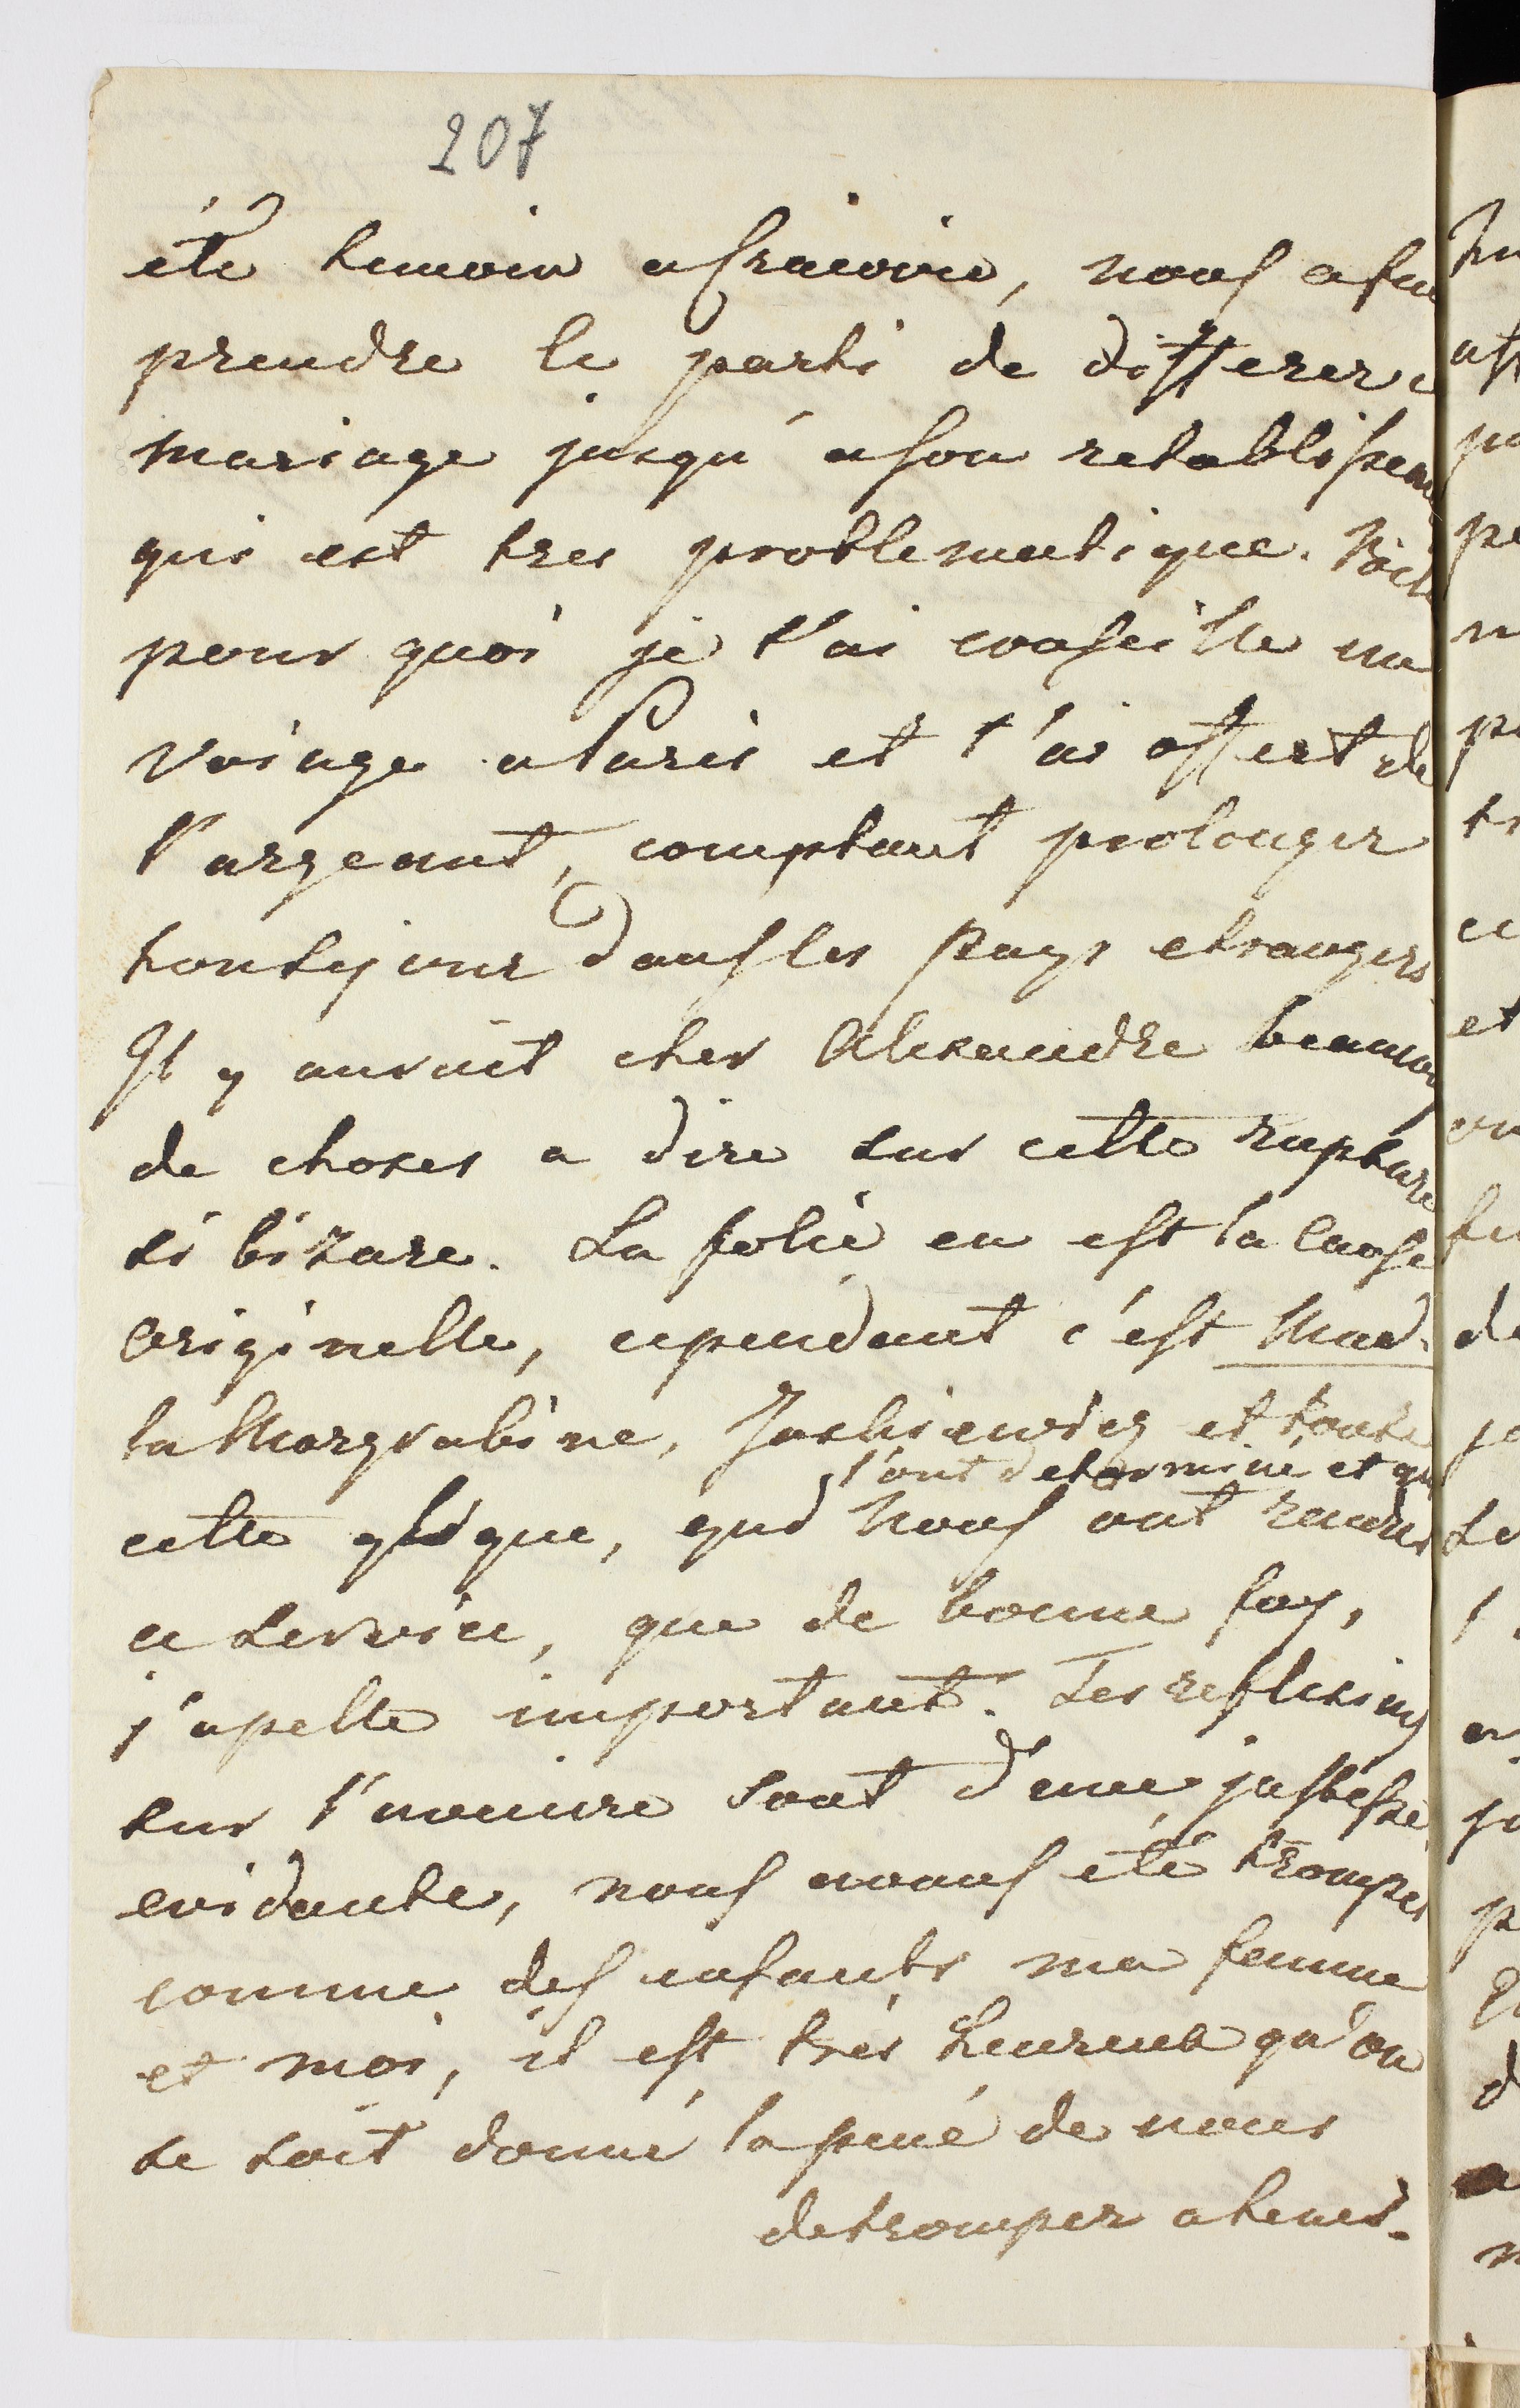 207
été temoin a Cracovie, nous a fai
prendre le parti de differer c
mariage jusqu'a son retablissem
qui est tres problematique. Voila
pour quoi je t'ai conseille un
voiage a Paris et t'ai offert de
l'argeant, comptant prolonger
ton sejour dans les pays etrangers.
Il y auroit cher Alexandre beaucou
de choses a dire sur cette rupture
si bizare. La folie en est la cause
originelle, cependant c'est Mad.
la Margrabine, et toute
l'ont determiné et qu
cette clique, qui nous ont rendus
ce service, que de bonne foy,
j'apelle important. Tes reflexions
sur l'avenire sont d'une justesse
evidante, nous avons été trompés
comme des enfants ma femme
et moi, il est très heureux qu'on
se soit donné la peine de nous
detromper a tems.